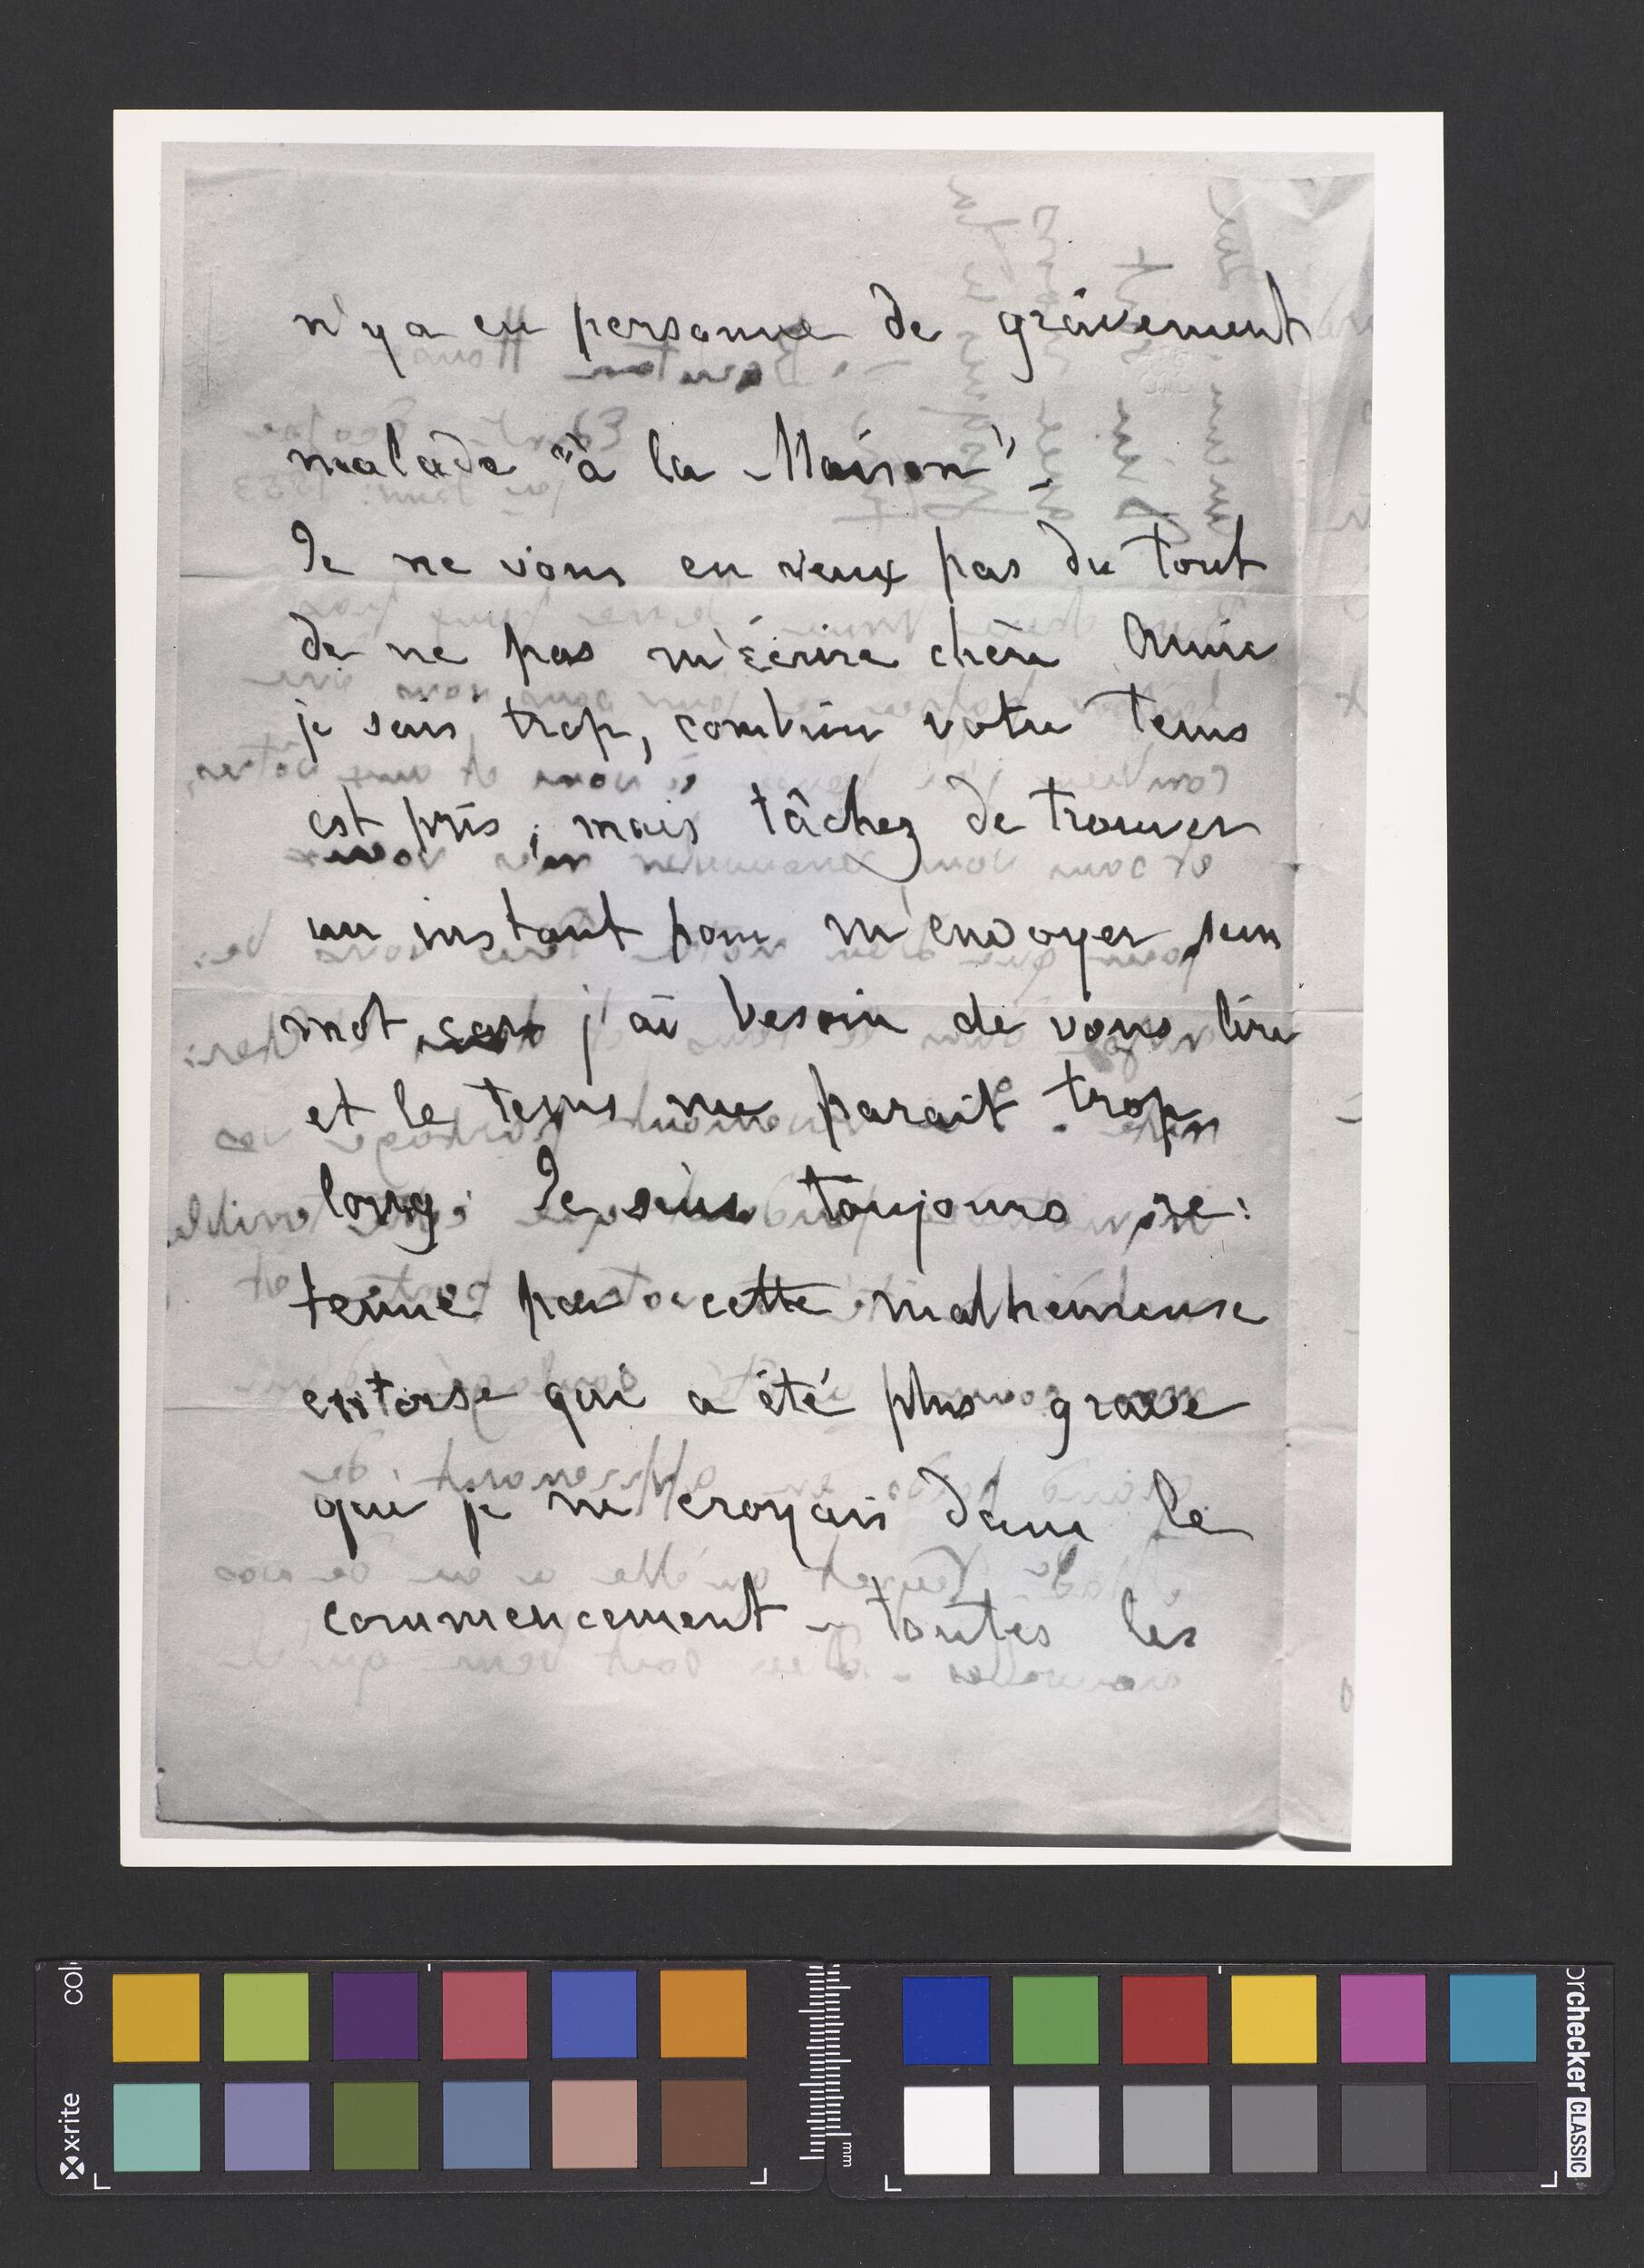 n'y a eu personne de gravement
malade "à la Maison".
Je ne vous en veux pas du tout
de ne pas m'écrire chère Amie
je sais trop, combien votre tems
est pris; mais tâchez de trouver
un instant pour m'envoyer un
mot car j'ai besoin de vous lire
et le tems me parait trop
long. Je suis toujours re:
tenue par cette malheureuse
entorse qui a été plus grave
que je ne croyais dans le
commencement - toutes les
x-rite
col
mm
orchecker CLASSIC